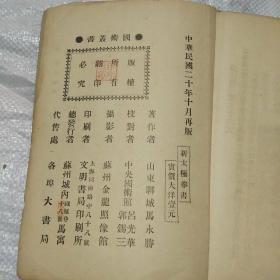 中華民國二十年十月再版
新太極拳書
實價大洋壹元
國術叢書
版權
所有
翻印
必究
著作者 山東聊城馬永勝
校對者 中央國術館 呂光華 郭錫三
攝影者 蘇州金龍照像館
印刷者 上海河南路中八十八號 文明書局印刷所
總發行者 蘇州城內 馬寓
代售處 各埠大書局